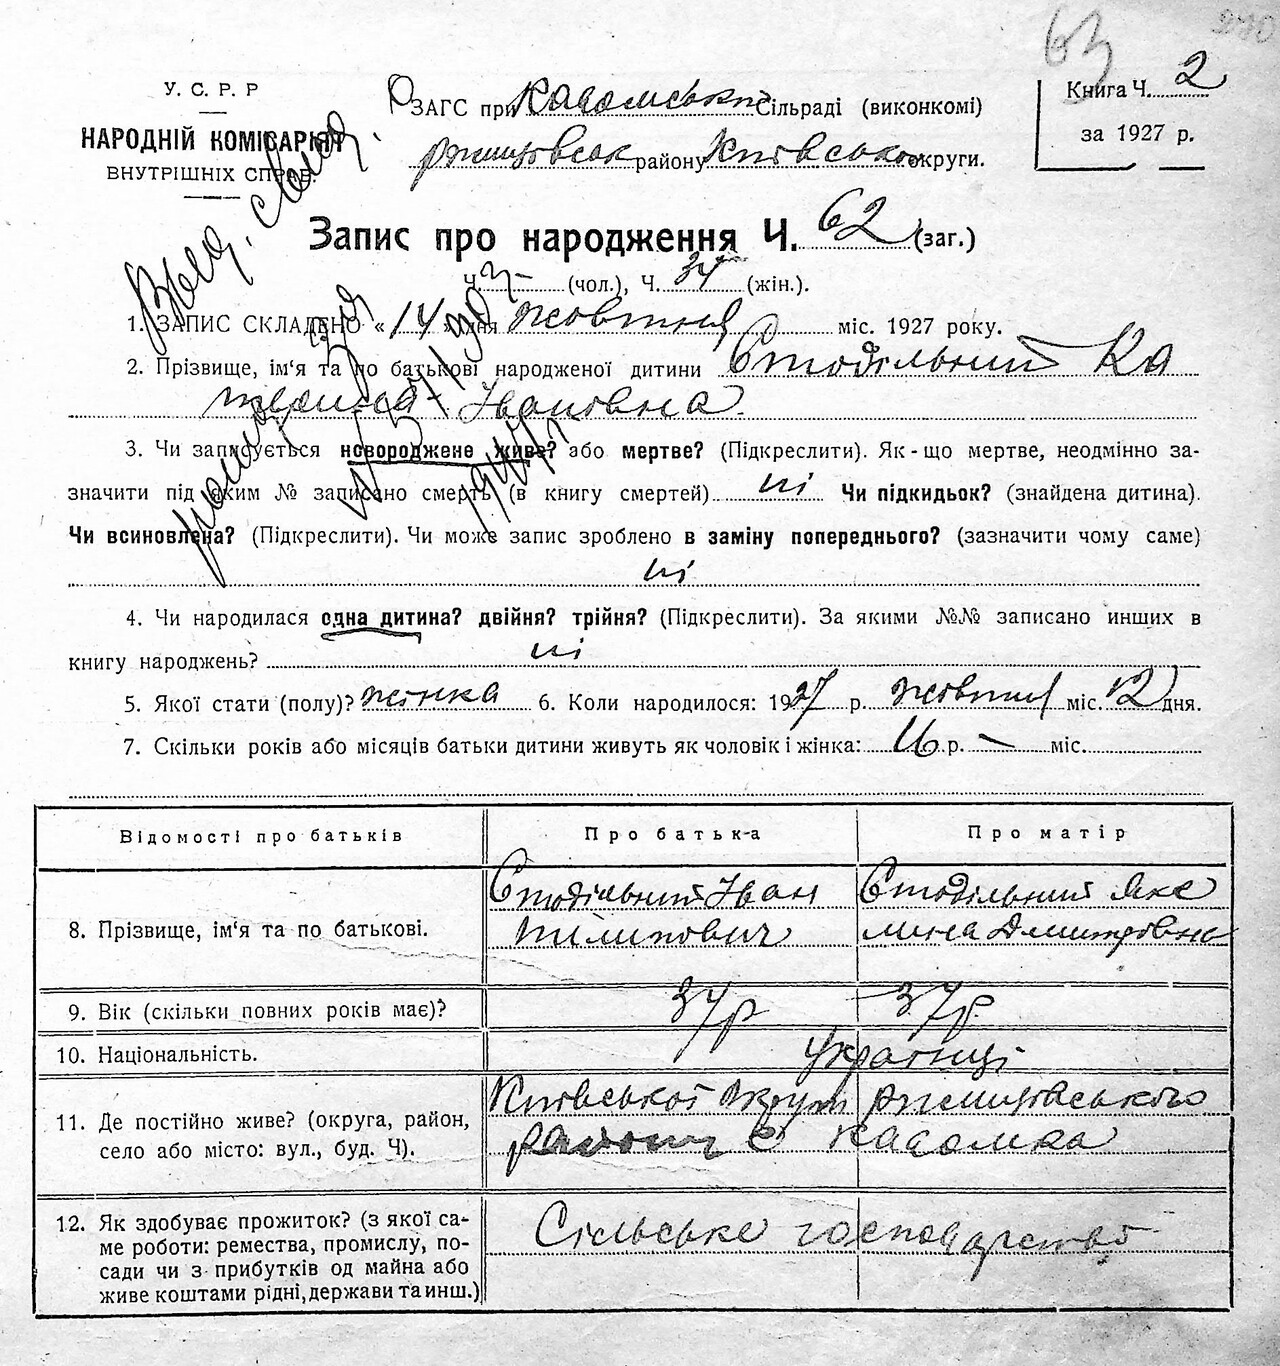 63
270
У. С. Р. Р
НАРОДНІЙ КОМІСАРІЯТ
ВНУТРІШНІХ СПРАВ.
ЗАГС при Кадомській Сільраді (виконкомі)
Ржищівськ району Київської округи.
Книга Ч. 2
за 1927 р.
Запис про народження Ч. 62 (заг.)
Ч. — (чол.), Ч. 34 (жін.).
1. ЗАПИС СКЛАДЕНО «14» дня жовтня міс. 1927 року.
2. Прізвище, ім'я та по батькові народженої дитини Стодільний Ка
терина Івановна
3. Чи записується новороджене живе? або мертве? (Підкреслити). Як-що мертве, неодмінно за-
значити під яким № записано смерть (в книгу смертей) ні Чи підкидьок? (знайдена дитина).
Чи всиновлена? (Підкреслити). Чи може запис зроблено в заміну попереднього? (зазначити чому саме)
ні
4. Чи народилася одна дитина? двійня? трійня? (Підкреслити). За якими №№ записано инших в
книгу народжень? ні
5. Якої стати (полу)? жінка 6. Коли народилося: 1927 р. жовтня міс. 12 дня.
7. Скільки років або місяців батьки дитини живуть як чоловік і жінка: 16 р. — міс.
Відомості про батьків Про батька Про матір
8. Прізвище, ім'я та по батькові. Стодільний Іван Пилипович Стодільний Якелина Дмитровна
9. Вік (скільки повних років має)? 37р 37р
10. Національність. Українці
11. Де постійно живе? (округа, район,
село або місто: вул., буд. Ч). Київської округи Ржищівського
району с Кадомка
12. Як здобуває прожиток? (з якої са-
ме роботи: ремества, промислу, по-
сади чи з прибутків од майна або
живе коштами рідні, держави та инш.) Сільське господарство